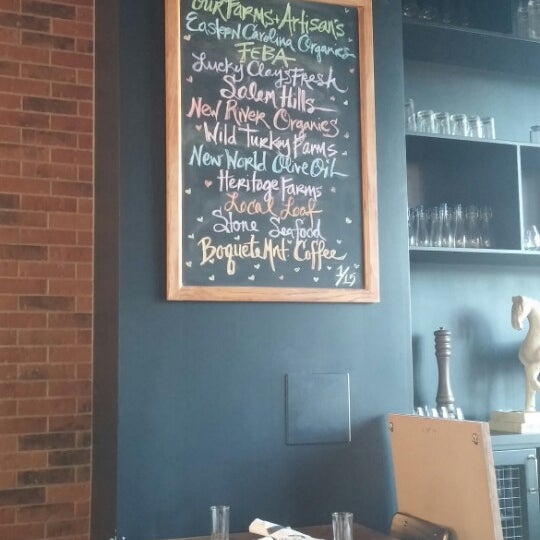 Our Farms + Artisan's
Eastern Carolina Organics
FEBA
Lucky Clays Fresh
Salem Hills
New River Organics
Wild Turkey Farms
New World Olive Oil
Heritage Farms
Local Loaf
Stone Seafood
Boquete Mnt. Coffee
1/15